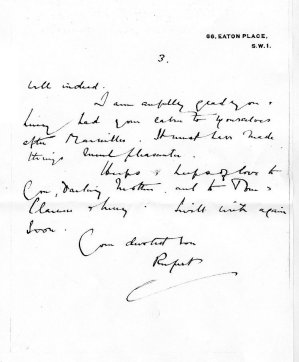 66, EATON PLACE,
S.W.1.
3.
well indeed.
I am awfully glad you &
had your cabin to yourselves
after Marseilles. It must have made
things much pleasanter.
Heaps & heaps of love to
you, Darling Mother, and to Dom &
Clarence &. I will write again
soon.
Your devoted son
Rupert